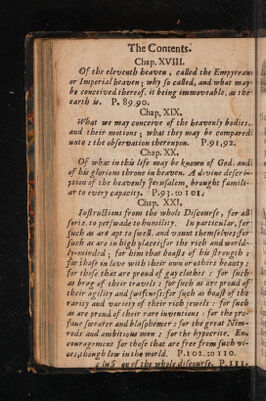 The Contents.
Chap. XVIII.
Of the eleventh heaven, called the Empyrean
or Imperial heaven; why so called, and what may
be conceived thereof, it being immoveable, as the
earth is. P. 89,90.
Chap. XIX.
What we may conceive of the heavenly bodies,
and their motions; what they may be compared
unto: the observation thereupon. P.91,92.
Chap. XX.
Of what in this life may be known of God, and
of his glorious throne in heaven. A divine descri-
ption of the heavenly Jerusalem, brought famili-
ar to every capacity. P.93. to 101.
Chap. XXI.
Instructions from the whole Discourse, for all
sorts, to perswade to humility. In particular, for
such as are apt to swell, and vaunt themselves; for
such as are in high places; for the rich and world-
ly-minded; for him that boasts of his strength;
for those in love with their own or others beauty;
for those that are proud of gay clothes; for such
as brag of their travels; for such as are proud of
their agility and swiftness; for such as boast of the
rarity and variety of their rich jewels; for such
as are proud of their rare inventions: for the pro-
fane swearer and blasphemer; for the great Nim-
rods and ambitious men; for the hypocrite. En-
couragement for those that are free from such vi-
ces, though low in the world. P.102. to 110.
of the whole discourse. P. 111.